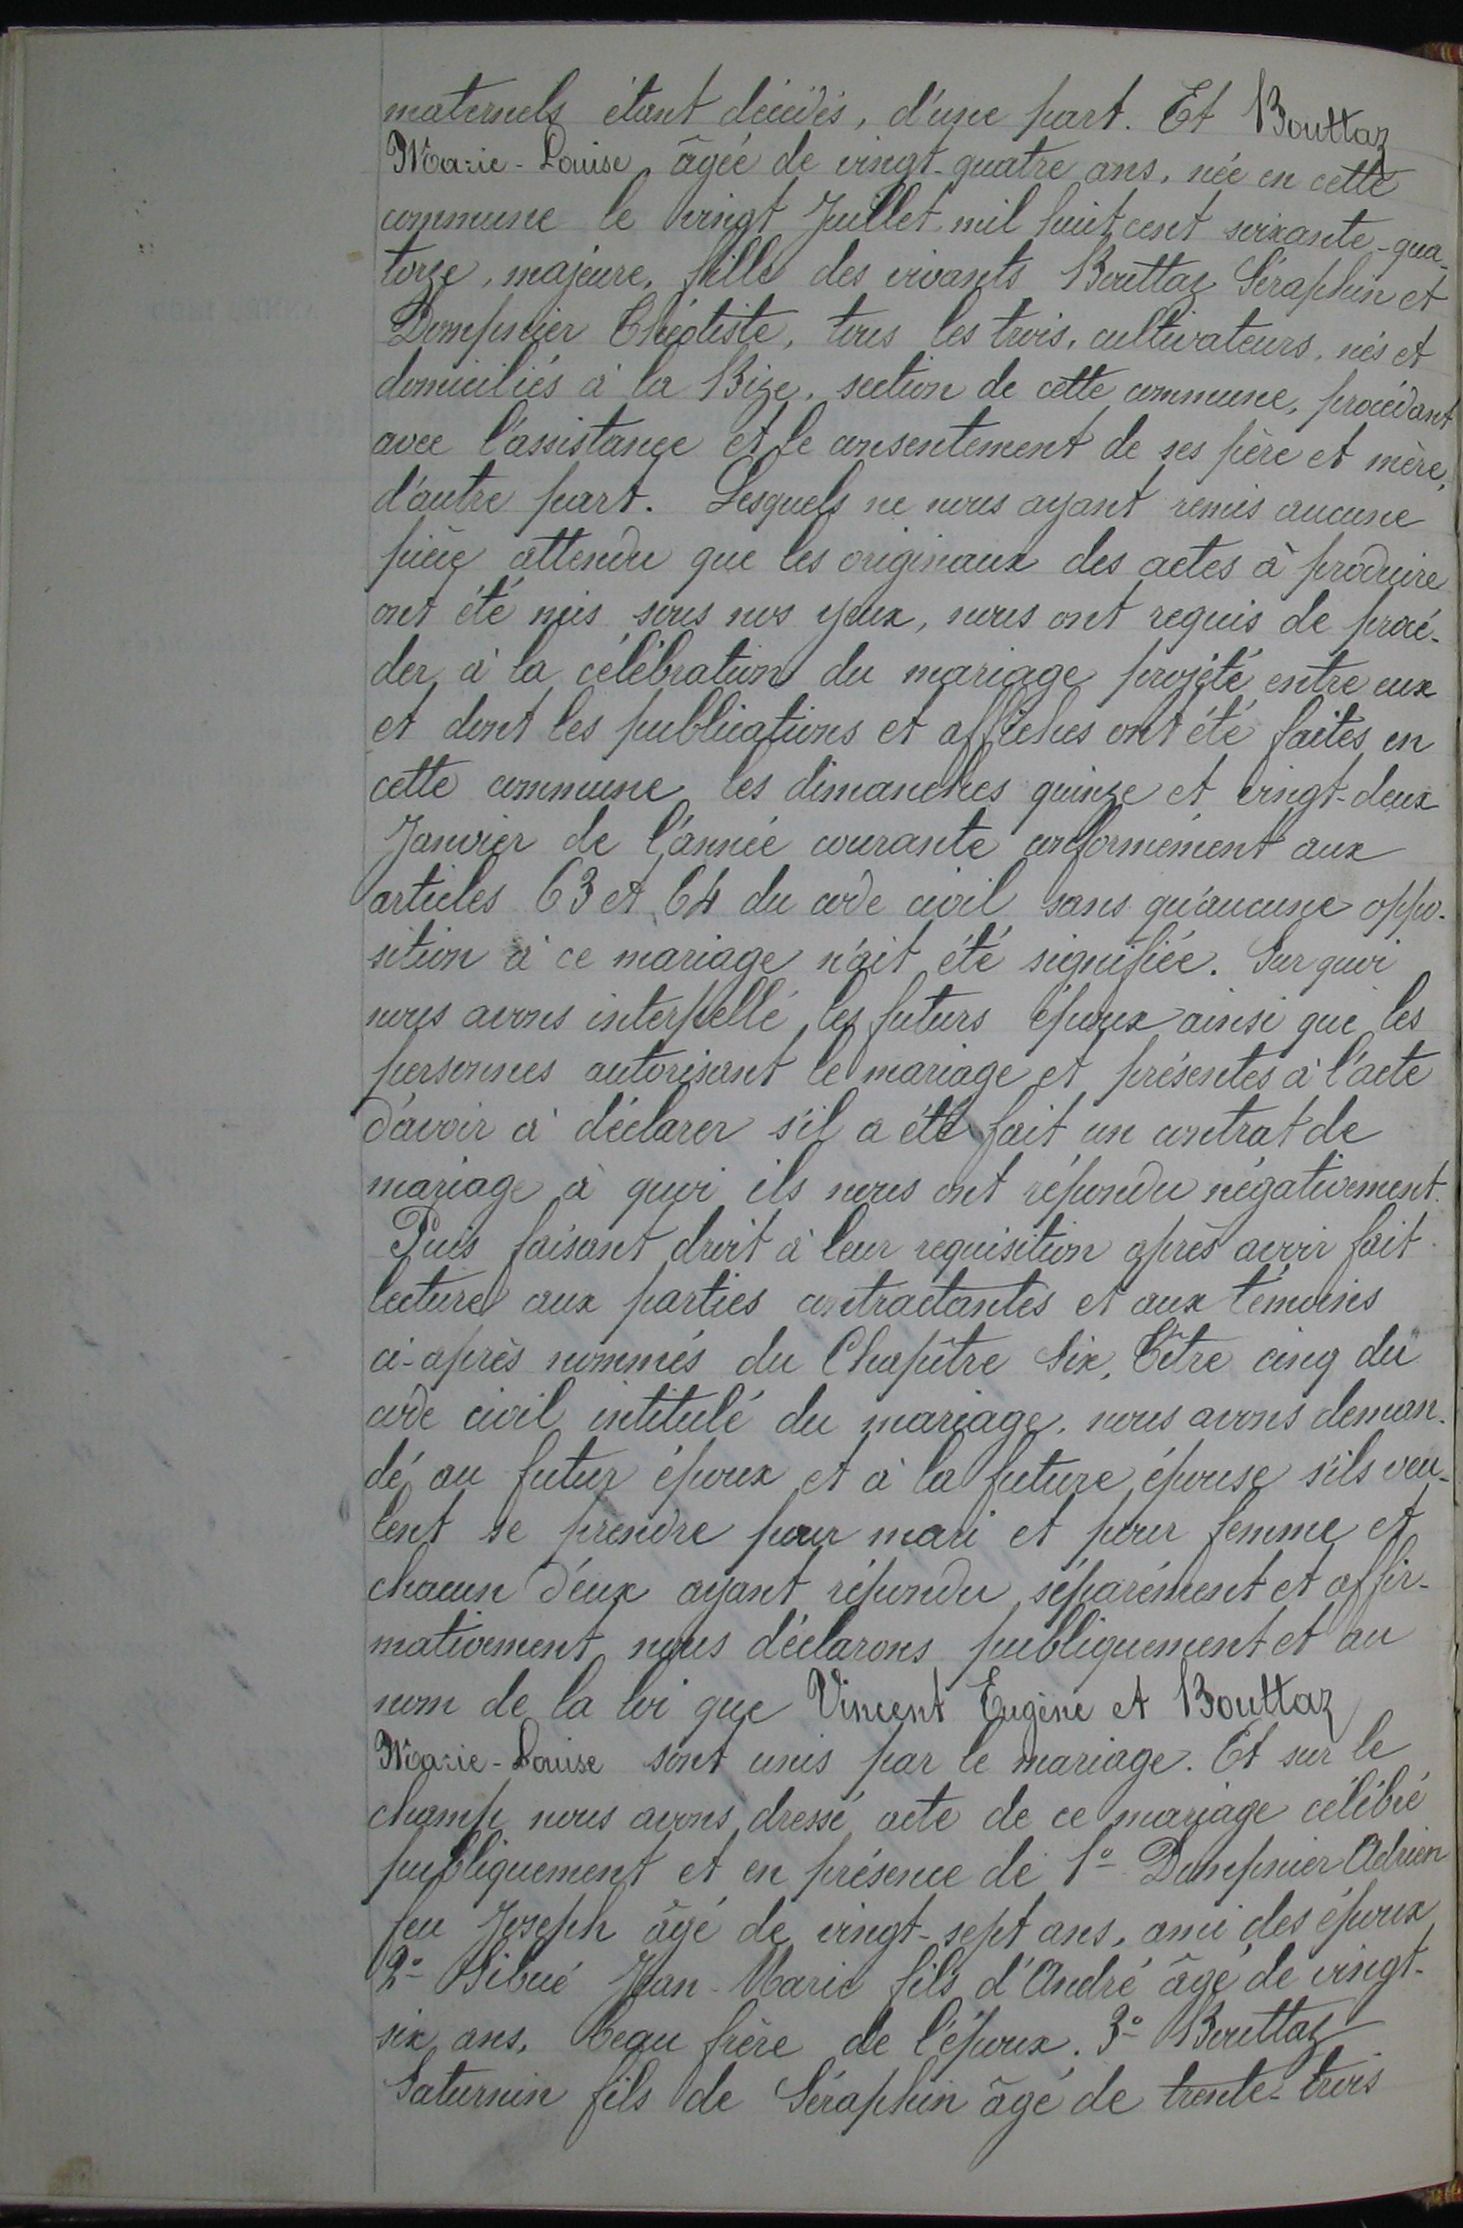 maternels étant décédés, d'une part. Et Bouttaz
Marie-Louise âgée de vingt-quatre ans, née en cette
commune le vingt Juillet mil huit cent soixante-qua-
torze, majeure, fille des vivants Bouttaz Séraphin et
Dompnier Théotiste, tous les trois, cultivateurs, nés et
domiciliés à la Bize, section de cette commune, procédant
avec l'assistance et le consentement de ses père et mère,
d'autre part. Lesquels ne nous ayant remis aucune
pièce attendu que les originaux des actes à produire
ont été mis sous nos yeux, nous ont requis de procé-
der à la célébration du mariage projeté entre eux
et dont les publications et affiches ont été faites en
cette commune les dimanches quinze et vingt-deux
Janvier de l'année courante conformément aux
articles 63 et 64 du code civil sans qu'aucune oppo-
sition à ce mariage n'ait été signifiée. Sur quoi
nous avons interpellé les futurs époux ainsi que les
personnes autorisant le mariage et présentes à l'acte
d'avoir à déclarer s'il a été fait un contrat de
mariage à quoi ils nous ont répondu négativement.
Puis faisant droit à leur requisition après avoir fait
lecture aux parties contractantes et aux témoins
ci-après nommés du Chapître six, Tître cinq du
code civil intitulé du mariage, nous avons deman-
dé au futur époux et à la future épouse s'ils veu-
lent se prendre pour mari et pour femme et
chacun d'eux ayant répondu séparément et affir-
mativement nous déclarons publiquement et au
nom de la loi que Vincent Eugène et Bouttaz
Marie-Louise sont unis par le mariage. Et sur le
champ nous avons dressé acte de ce mariage célébré
publiquement et en présence de 1º Dompnier Adrien
feu Joseph âgé de vingt-sept ans, ami des époux
2º Sibué Jean-Marie fils d'André âgé de vingt-
six ans, beau frère de l'époux. 3º Bouttaz
Saturnin fils de Séraphin âgé de trente-trois